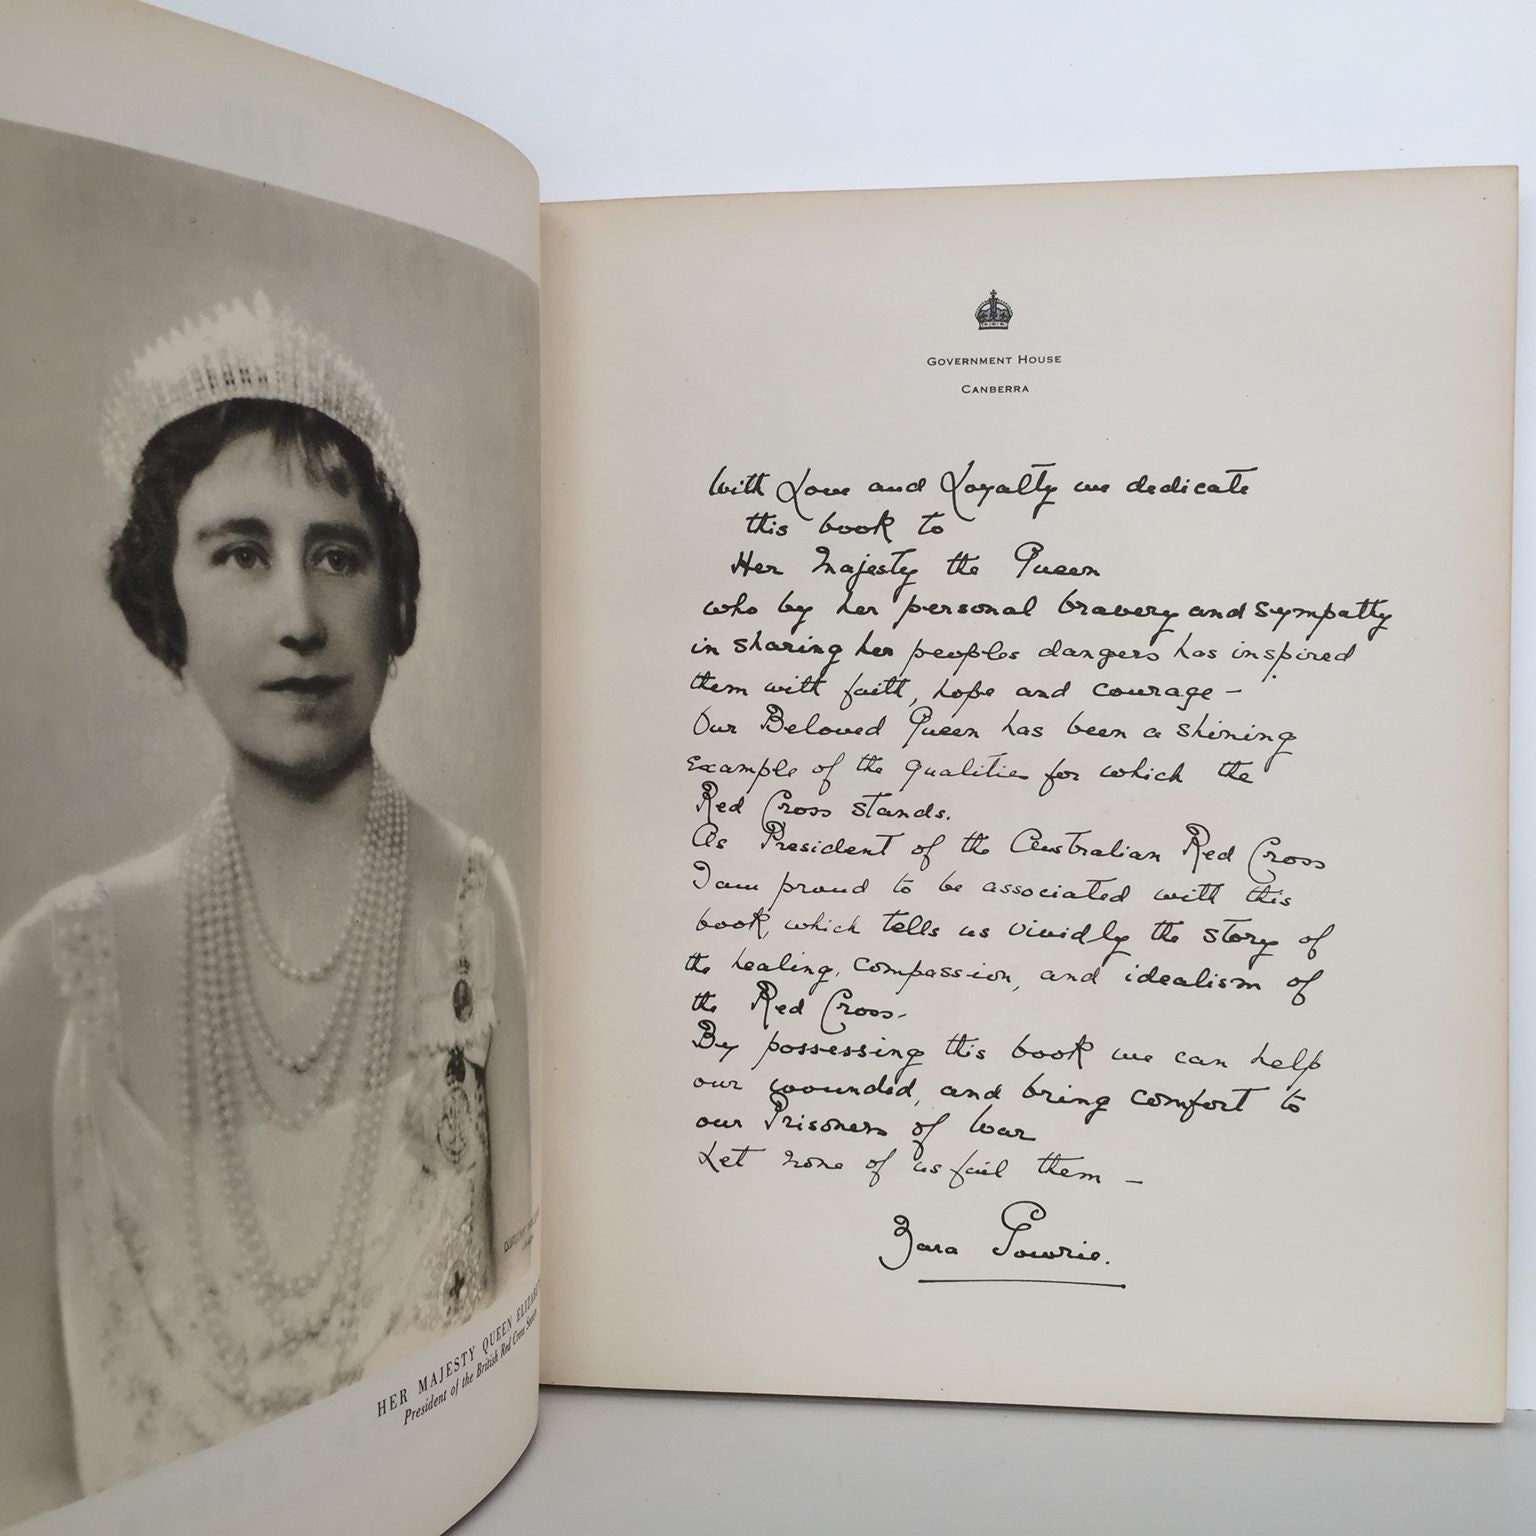 HER MAJESTY QUEEN ELIZABET
President of the British Red Cross Society
GOVERNMENT HOUSE
CANBERRA
With Love and Loyalty we dedicate
this book to
Her Majesty the Queen
who by her personal bravery and sympathy
in sharing her peoples dangers has inspired
them with faith, hope and courage –
Our Beloved Queen has been a shining
Example of the qualities for which the
Red Cross stands.
As President of the Australian Red Cross
I am proud to be associated with this
book, which tells us vividly the story of
the healing, compassion, and idealism of
the Red Cross.
By possessing this book we can help
our wounded, and bring comfort to
our Prisoners of War
Let none of us fail them –
Zara Gowrie.